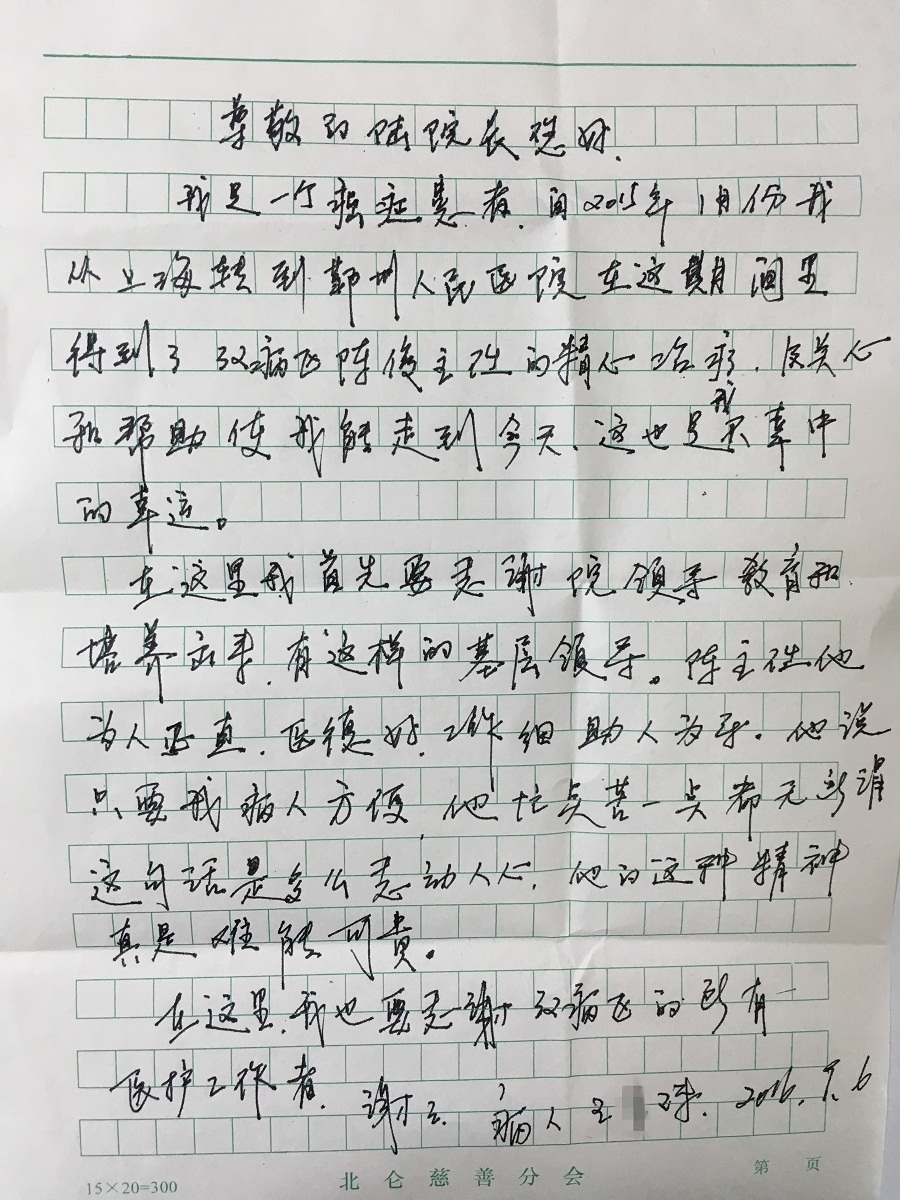 尊敬的陆院长您好.
我是一个癌症患者,自2015年1月份我
从上海转到鄞州人民医院在这期间里
得到了双病区陈俊主任的精心治疗.及关心
和帮助使我能走到今天、这也是我不幸中
的幸运。
在这里我首先要感谢院领导教育和
培养出来,有这样的基层领导。陈主任他
为人正直.医德好.工作细助人为乐.他说
只要我病人方便,他忙点苦一点都无所谓
这句话是多么感动人心.他的这种精神
真是难能可贵。
在这里,我也要感谢双病区的所有
医护工作者.谢谢
病人王 2016.9.6
北仑慈善分会
15×20=300
第 页